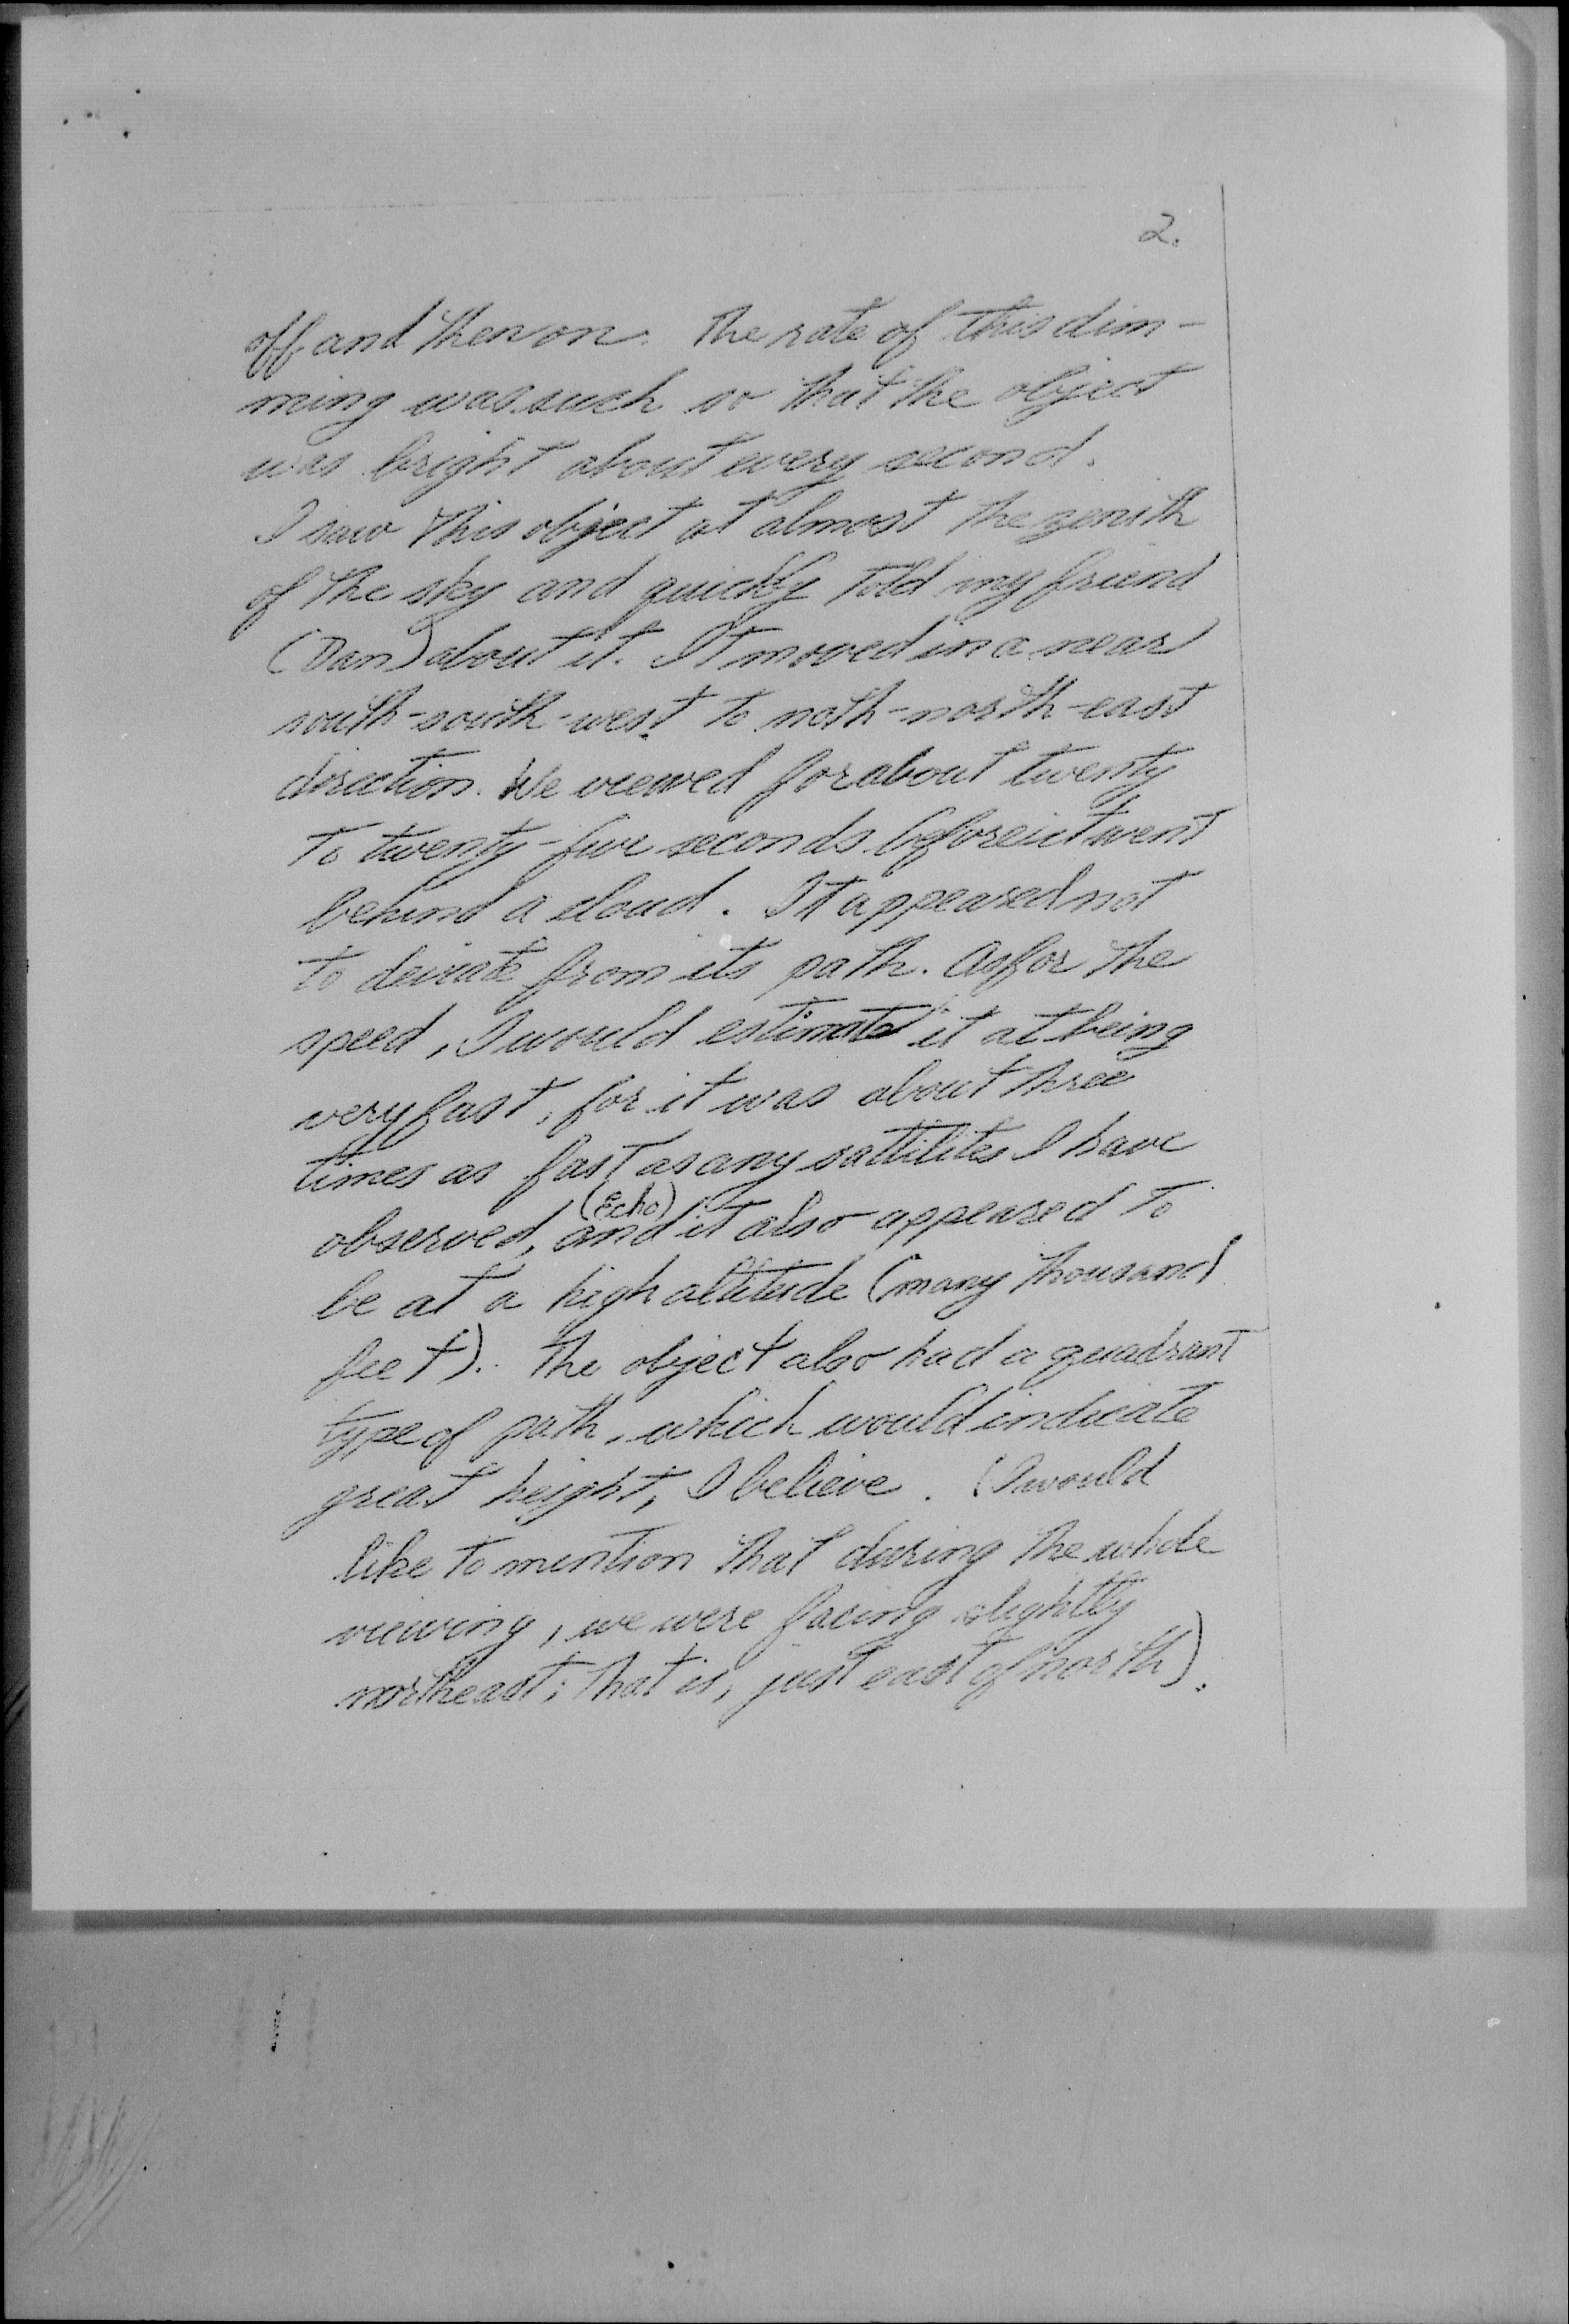 2.
off and then on. The rate of this dim-
ming was such so that the object
was bright about every second.
I saw this object at almost the zenith
of the sky and quickly told my friend
(Dan) about it. It moved in a near
south-south-west to noth-north-east
direction. We viewed for about twenty
to twenty-five seconds before it went
behind a cloud. It appeared not
to deviate from its path. As for the
speed, I would estimate it at being
very fast, for it was about three
times as fast as any sattilites I have
(Echo)
observed, and it also appeared to
be at a high altitude (many thousand
feet). The object also had a quadrant
type of path, which would indicate
great height, I believe. (I would
like to mention that during the whole
viewing, we were facing slightly
northeast; that is, just east of north).